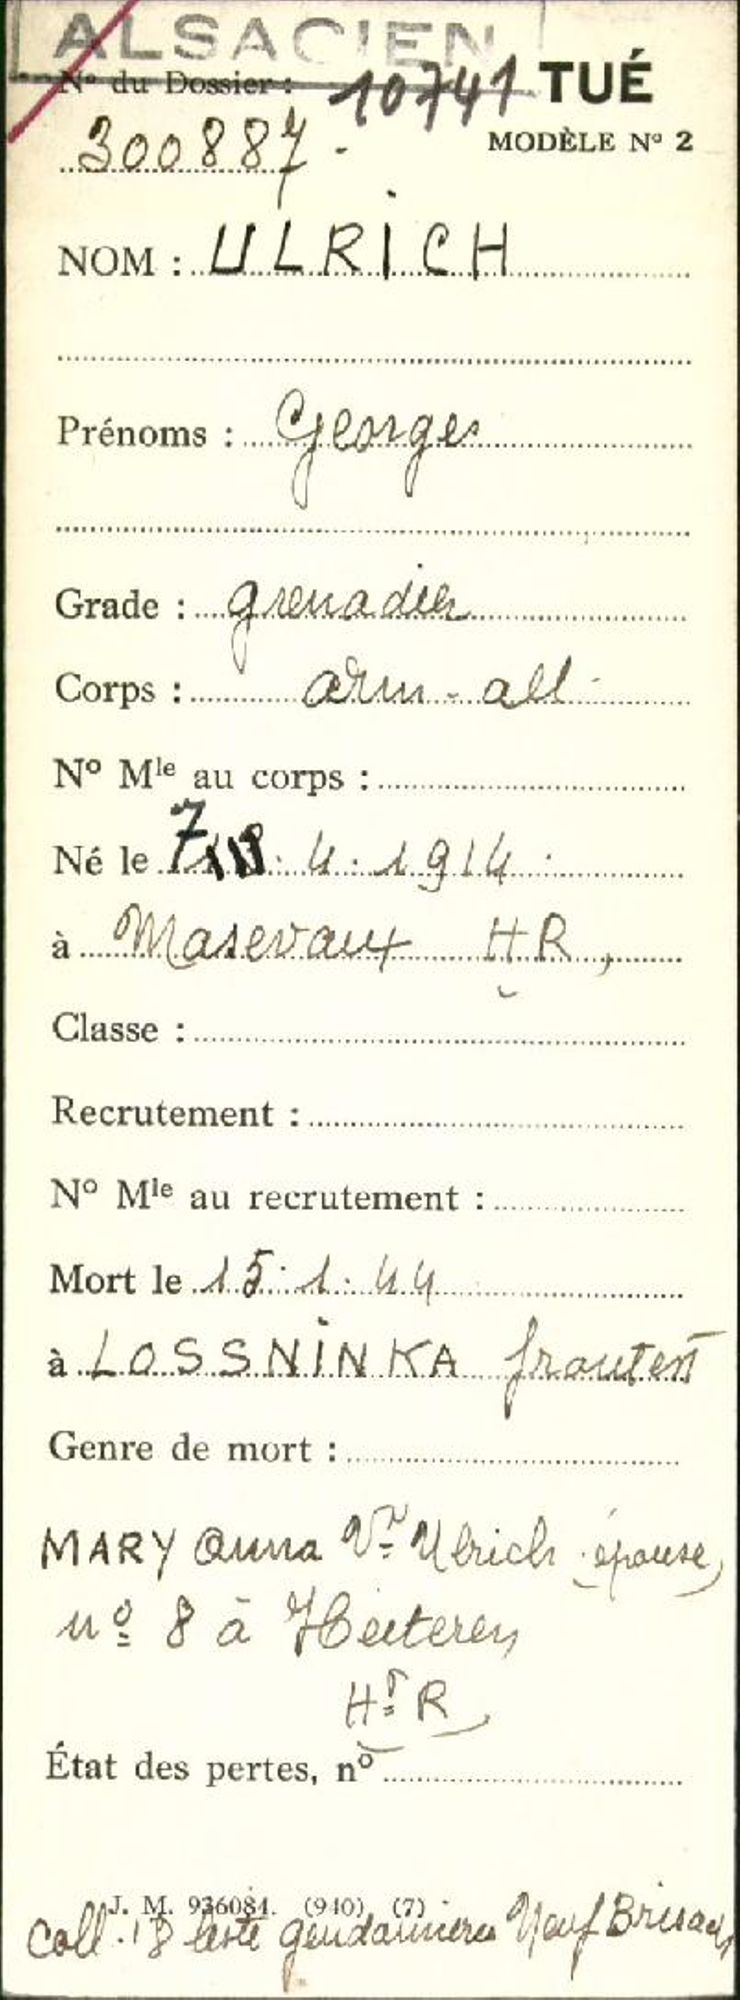 ALSACIEN
N° du Dossier : 10741 TUÉ
300887 - MODÈLE N° 2
NOM : ULRICH
Prénoms : Georges
Grade : grenadier
Corps : arm - all
N° Mle au corps :
Né le 7 . 4 . 1914
à Masevaux HR,
Classe :
Recrutement :
N° Mle au recrutement :
Mort le 15 . 1 . 44
à LOSSNINKA
Genre de mort :
MARY Anna Vve Ulrich épouse
n° 8 à Heiteren
Ht R
État des pertes, n°
J. M. 936084. (940) (7)
Coll. 18 liste gendarmerie Neuf Brisach